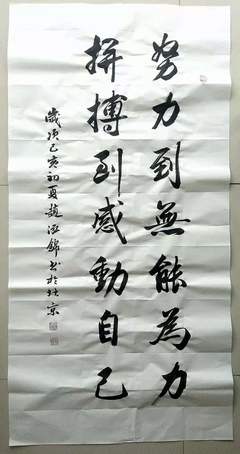 努力到無能為力
拼搏到感動自己
歲次己亥初夏趙海錦书於北京